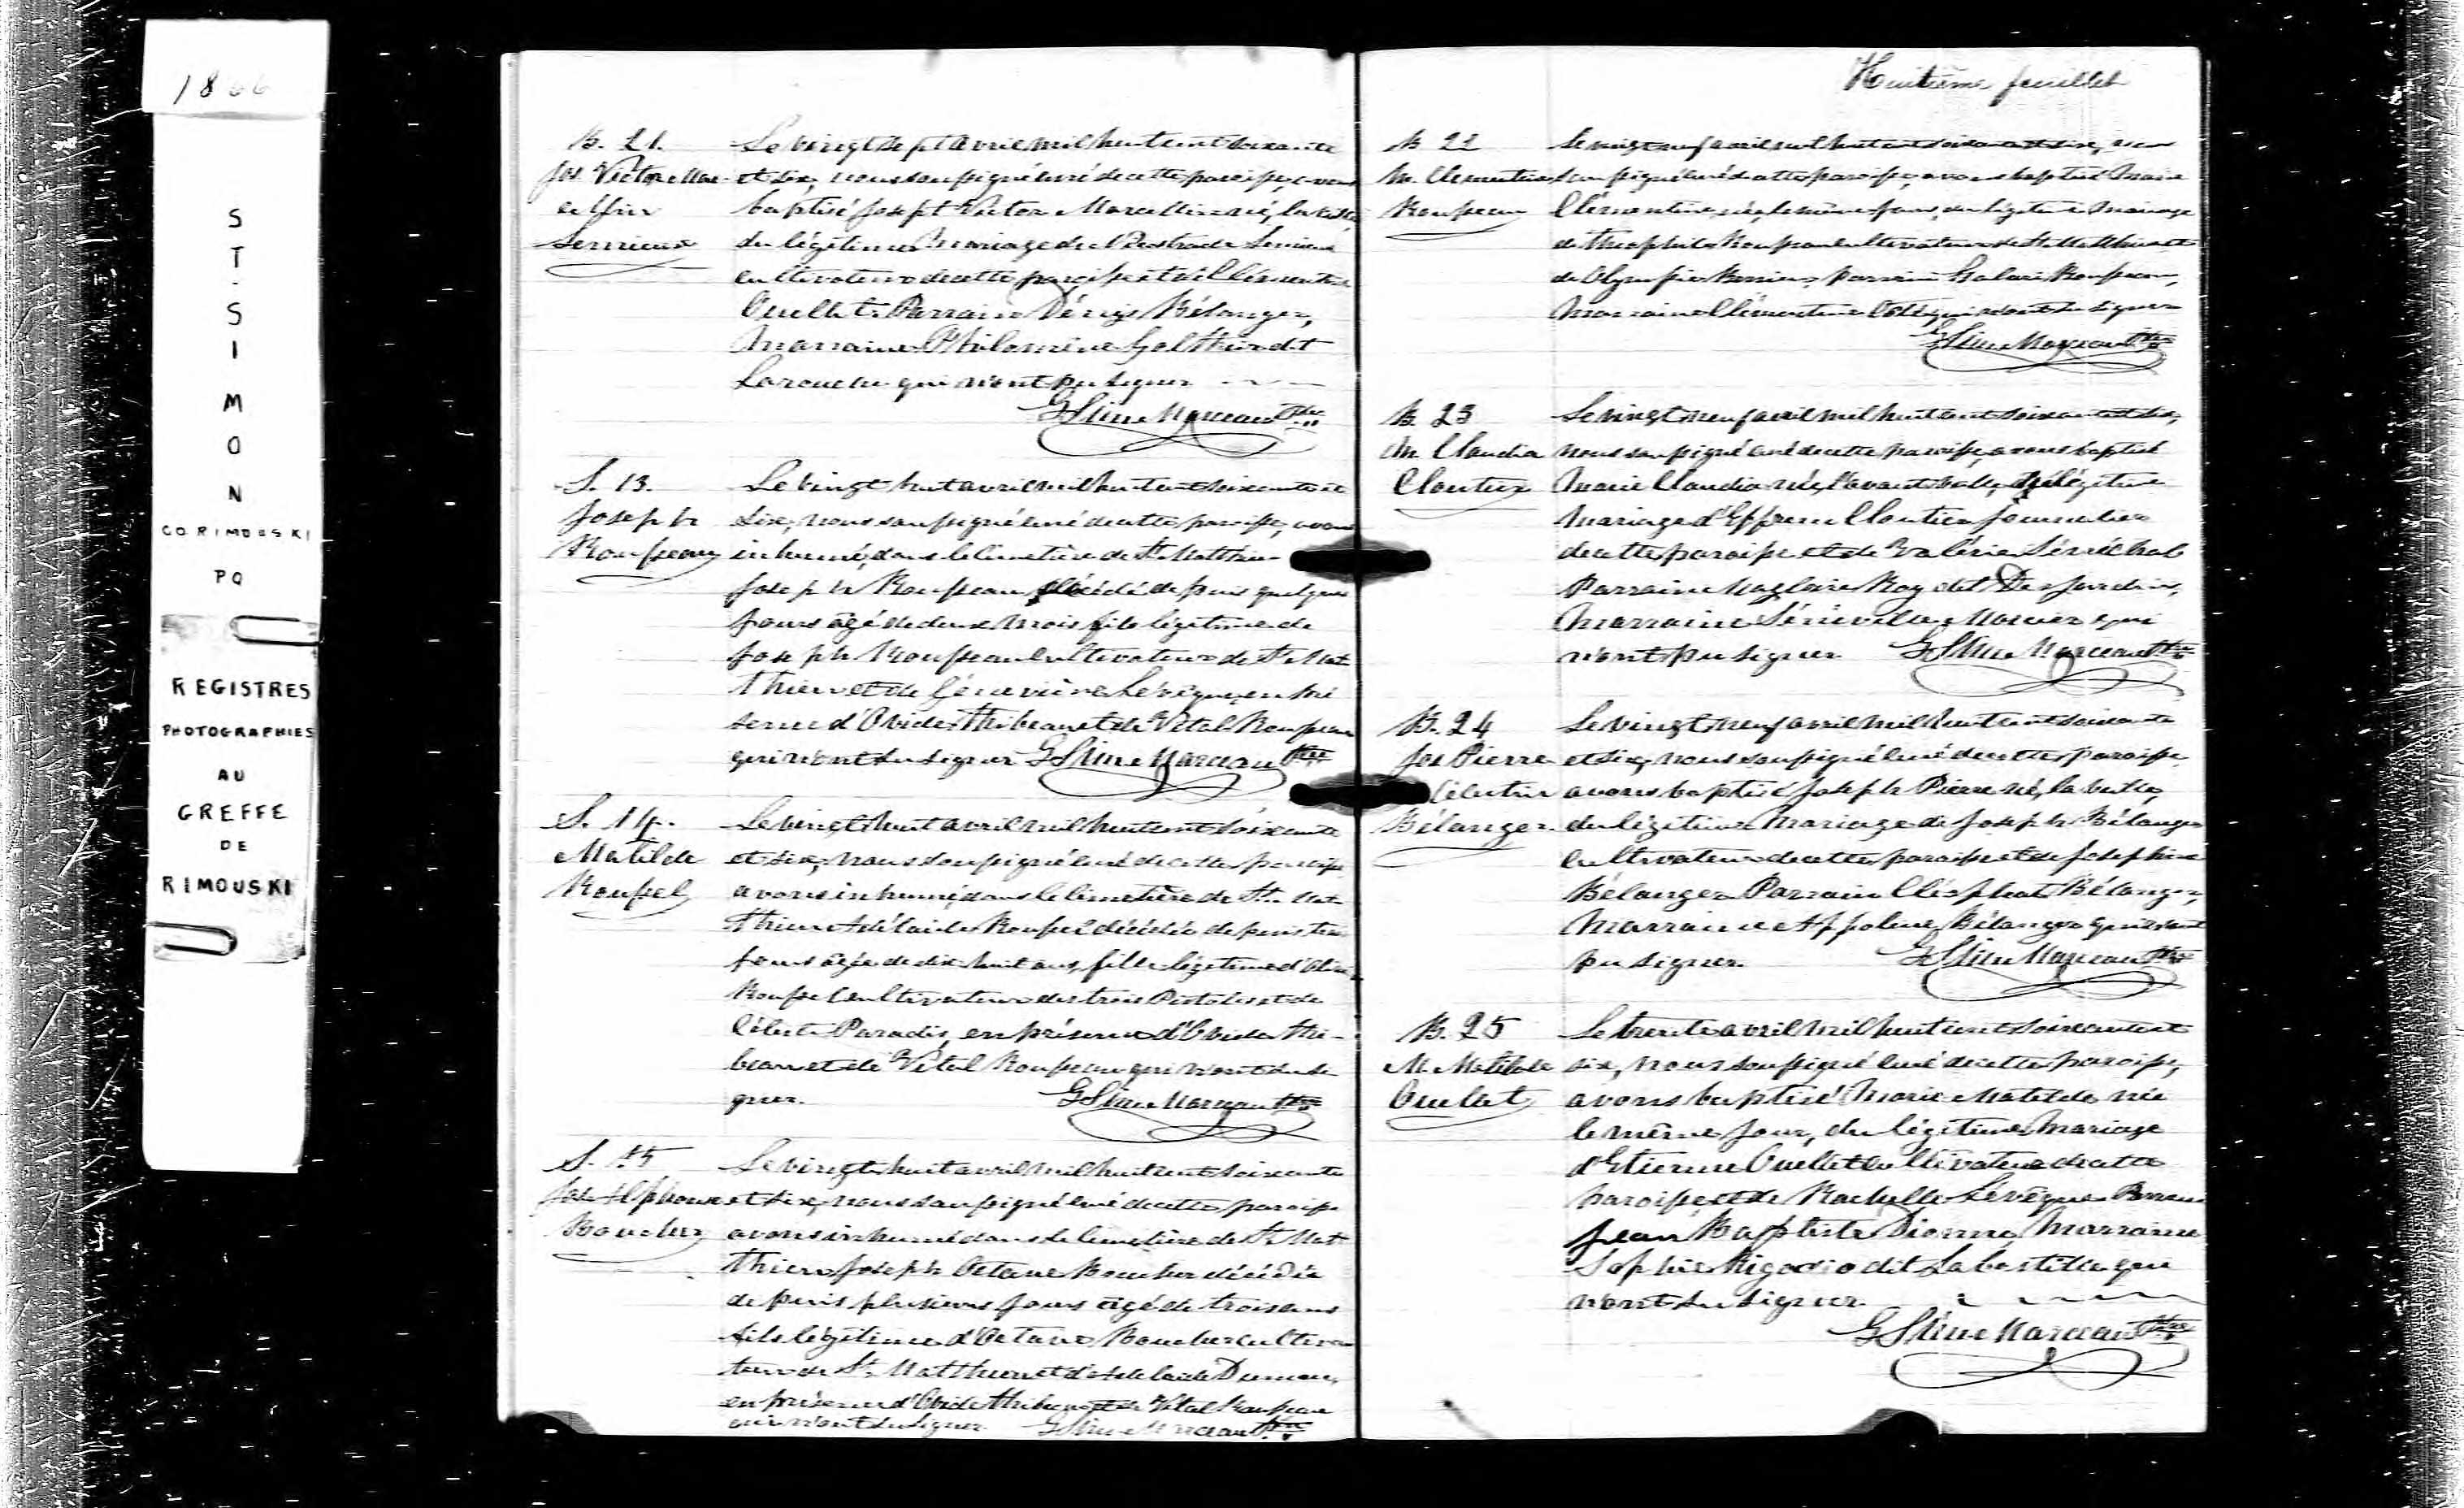 1866
ST-SIMON
CO. RIMOUSKI
PQ
REGISTRES
PHOTOGRAPHIES
AU
GREFFE
DE
RIMOUSKI
B. 21.
Jos. Victor Mar-
cellin
Lemieux
Le vingt sept avril mil huit cent soixante
et six, nous soussigné curé de cette paroisse, avons
baptisé Joseph Victor Marcellin né, la veille,
du légitime mariage de Lemieux
cultivateur de cette paroisse et de Clémentine
Ouellet. Parrain Dénis Bélanger,
Marraine Philomène Golthier dit
Larouche qui n'ont pu signer
Marceau Ptre
S. 13.
Joseph
Rousseau
Le vingt huit avril mil huit cent soixante et
six, nous soussigné curé de cette paroisse, avons
inhumé, dans le cimetière de St. Matthieu
Joseph Rousseau décédé depuis quelques
jours âgé de deux mois fils légitime de
Joseph Rousseau cultivateur de St. Mat-
thieu et de Géneviève Levêque, en pré
sence d'Ovide Thibeau et de Vital Rousseau
qui n'ont su signer Marceau Ptre
S. 14.
Matilde
Roussel
Le vingt huit avril mil huit cent soixante
et six, nous soussigné curé de cette paroisse
avons inhumé, dans le cimetière de St. Mat-
thieu Adélaide Roussel décédée depuis trois
jours âgée de dix huit ans, fille légitime d'
Roussel cultivateur des trois Pistoles et de
Céleste Paradis, en présence d'Ovide Thi-
beau et de Vital Rousseau qui n'ont su si
gner. Marceau Ptre
S. 15
Jos. Alphonse
Boucher
Le vingt huit avril mil huit cent soixante
et six, nous soussigné curé de cette paroisse
avons inhumé dans le cimetière de St. Mat
thieu Joseph Octave Boucher décédé
depuis plusieurs jours âgé de trois ans
fils légitime d'Octave Boucher cultiva
teur de St. Matthieu et d'Adelaide Dumas,
en présence d'Ovide Thibeau et de Vital Rousseau
qui n'ont su signer. Marceau Ptre
Huitième feuillet
B. 22
M. Clementine
Rousseau
Le vingt neuf avril mil huit cent soixante et six, nous
soussigné curé de cette paroisse, avons baptisé Marie
Clémentine, née, le même jour, du légitime mariage
de Théophile Rousseau cultivateur de St. Matthieu et
de Olympe Parrain Rousseau,
Marraine Clémentine Coté qui n'ont su signer
Marceau Ptre
B. 23
M. Claudia
Cloutier
Le vingt neuf avril mil huit cent soixante et six,
nous soussigné curé de cette paroisse, avons baptisé
Marie Claudia née, l'avant veille, du légitime
mariage d'Effrem Cloutier journalier
de cette paroisse et de Valérie Sénéchal
Parrain Magloire Roy dit Desjardins,
Marraine Mercier qui
n'ont pu signer Marceau Ptre
B. 24
Jos Pierre
Célestin
Bélanger
Le vingt neuf avril mil huit cent soixante
et six, nous soussigné curé de cette paroisse
avons baptisé Joseph Pierre né, la veille,
du légitime mariage de Joseph Bélanger
cultivateur de cette paroisse et de Josephine
Bélanger Parrain Cléophas Bélanger,
Marraine Appoline Bélanger qui n'ont
pu signer. Marceau Ptre
B. 25
M. Matilde
Ouelet
Le trente avril mil huit cent soixante et
six, nous soussigné curé de cette paroisse,
avons baptisé Marie Matilde née
le même jour, du légitime mariage
d'Etienne Ouellet cultivateur de cette
paroisse, et de Rachelle Levêque Parrain
Jean Baptiste Dionne, Marraine
Sophie Rigodio dit Labastille qui
n'ont su signer.
Marceau Ptre